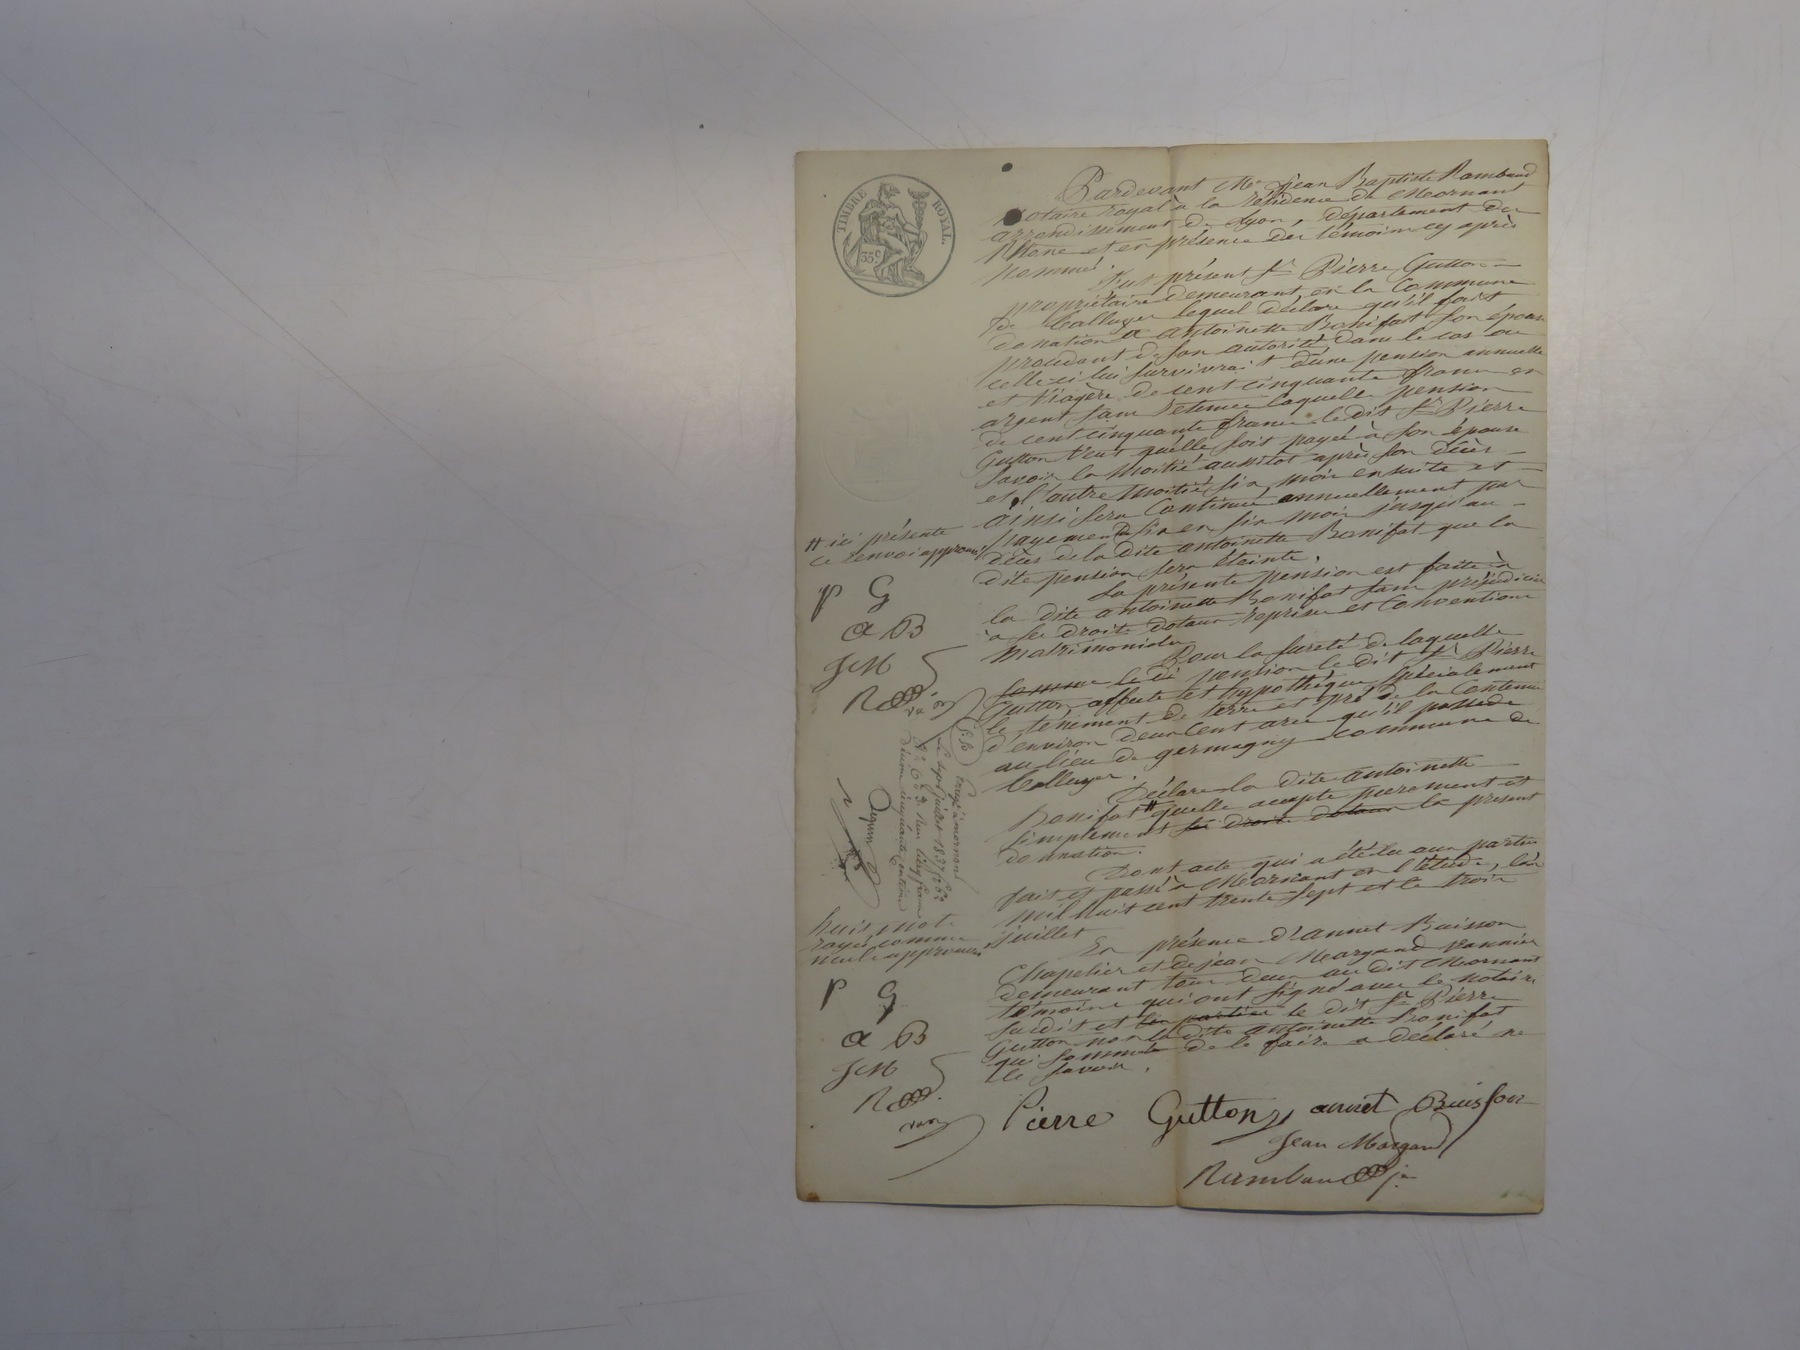 TIMBRE ROYAL.
35 c
Pardevant Me Jean Baptiste Rambaud
notaire royal à la résidence de Mornant
arrondissement de Lyon, département du
Rhone et en présence des témoins cy après
nommés.
Fut présent Sr Pierre Gutton
propriétaire demeurant en la Commune
de lequel déclare qu'il fait
donation à antoinette Bonifat son épouse
procedant de son autorité dans le cas ou
celle ci lui survivrait d'une pension annuelle
et viagère de cent cinquante francs en
argent sans retenue laquelle pension
de cent cinquante francs le dit Sr Pierre
Gutton veut quelle soit payé à son épouse
Savoir la moitié aussitot après son décès
et l'autre moitié six mois ensuite et
ainsi sera continué annuellement par
payement de six en six mois jusqu'au
décès de la dite antoinette Bonifat que la
dite pension sera éteinte.
La présente pension est faite à
la dite antoinette Bonifat sans préjudicier
à ses droits dotaux reprises et Conventions
matrimoniales
Pour la sureté de laquelle
somme pension le dit Sr Pierre
Gutton affecte et hypothéque spécialement
le tènement de terre et pré de la Contenue
d'environ deux Cent ares qu'il possede
au lieu de germagny commune de
Déclare la dite antoinette
Bonifat # quelle accepte purement et
simplement ses droits dotaux la present
donation.
Dont acte qui a été lu aux parties
fait et passé à Mornant en l'étude, l'an
mil huit cent trente sept et le trois
juillet
En présence d'annet Buisson
Chapelier et de jean Margand vannier
demeurant tous deux au dit Mornant
témoins qui ont signé avec le notaire
susdit et les parties le dit Sr Pierre
Gutton non la dite antoinette Bonifat
qui sommée de le faire a déclaré ne
le savoir.
# ici présente
ce renvoi approuvé
P G
a B
J M
R
huit mots
rayés comme
nuls approuvés
P G
a B
J M
R
Pierre Gutton annet Buisson
Jean Margand
Rambaud